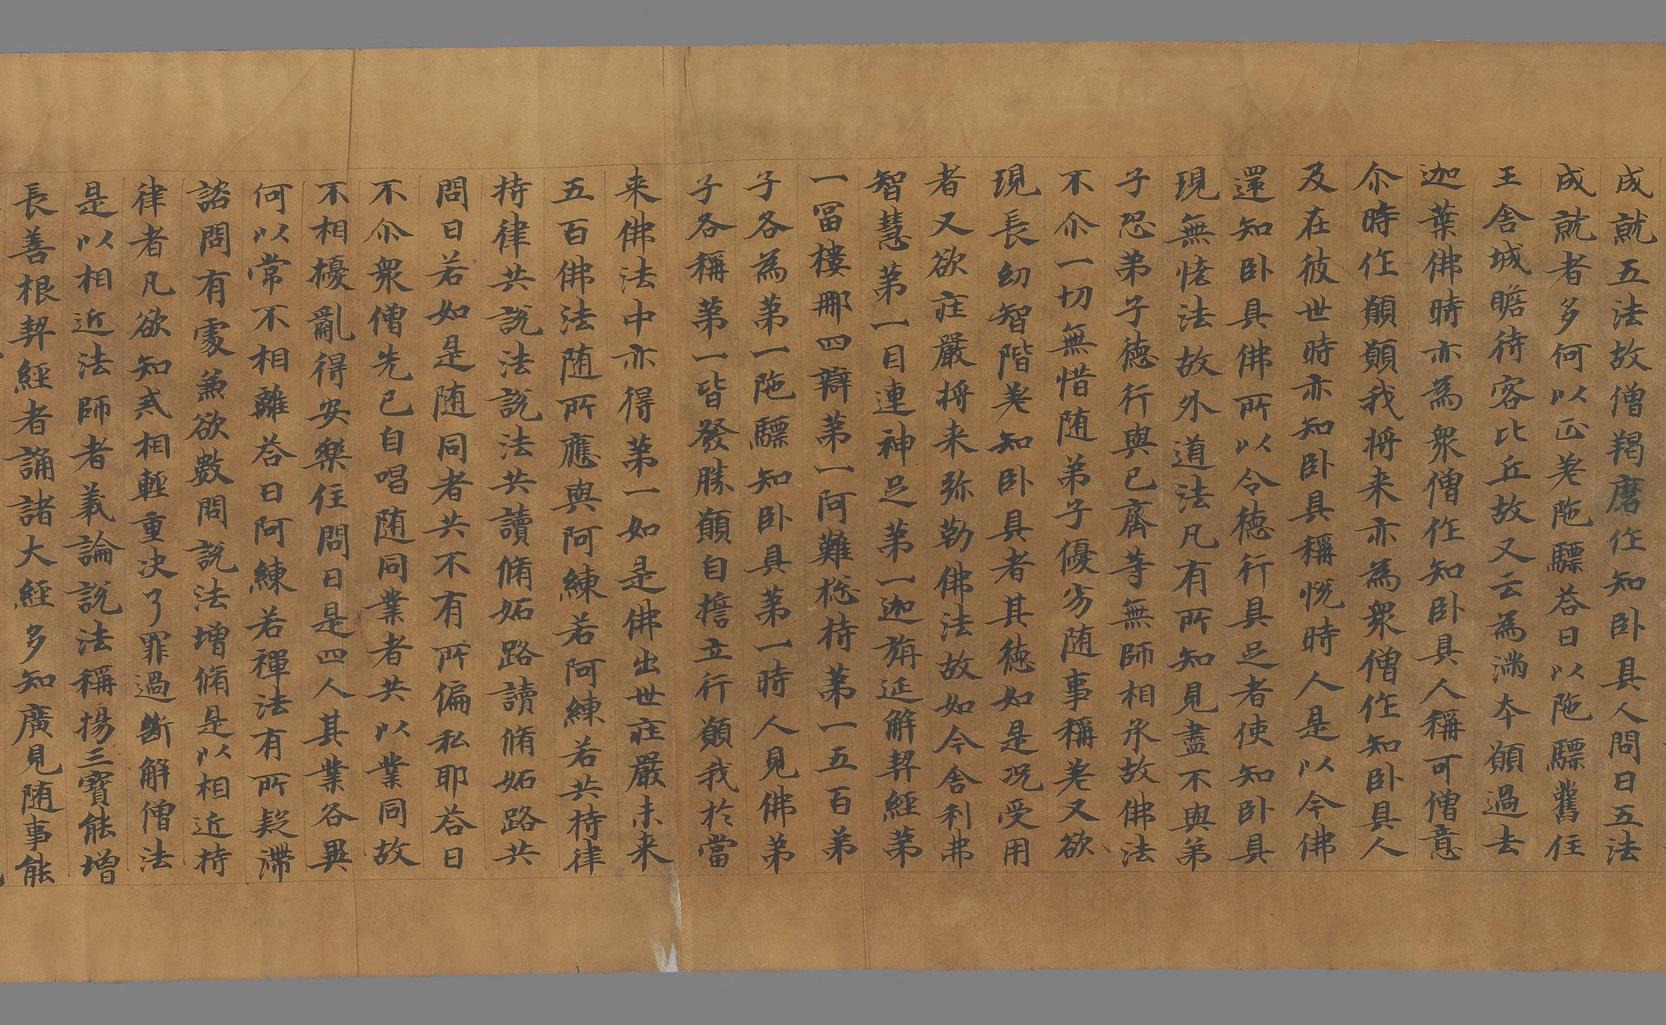 成就五法故僧羯磨作知卧具人問曰五法
成就者多何以正差陁驃荅曰以陁驃舊住
王舍城瞻待客比丘故又云為滿夲願過去
迦葉佛時亦為衆僧作知卧具人稱可僧意
尒時作願願我将来亦為衆僧作知卧具人
及在彼世時亦知卧具稱恱時人是以今佛
還知卧具佛所以令徳行具足者使知卧具
現無恡法故外道法凡有所知見盡不與弟
子恐弟子徳行與已齊等無師相承故佛法
不尒一切無惜随弟子優劣随事稱差又欲
現長幼智階差知卧具者其徳如是况受用
者又欲莊嚴将来弥勒佛法故如今舎利弗
智慧第一目連神足第一迦旃延解契經第
一冨樓那四辯第一阿難捴持第一五百弟
子各為第一陁驃知卧具第一時人見佛弟
子各稱第一皆發勝願自擔立行願我於當
来佛法中亦得第一如是佛出世莊嚴未来
五百佛法随所應與阿練若阿練若共持律
持律共說法說法共讀脩妬路讀脩妬路共
問曰若如是随同者共不有所偏私耶荅曰
不尒衆僧先已自唱随同業者共以業同故
不相擾亂得安樂住問曰是四人其業各異
何以常不相離荅曰阿練若禪法有所疑滯
諮問有處兼欲數問說法增脩是以相近持
律者凡欲知貳相輕重决了罪過断解僧法
是以相近法師者義論說法稱揚三寶能增
長善根契經者誦諸大經多知廣見随事能